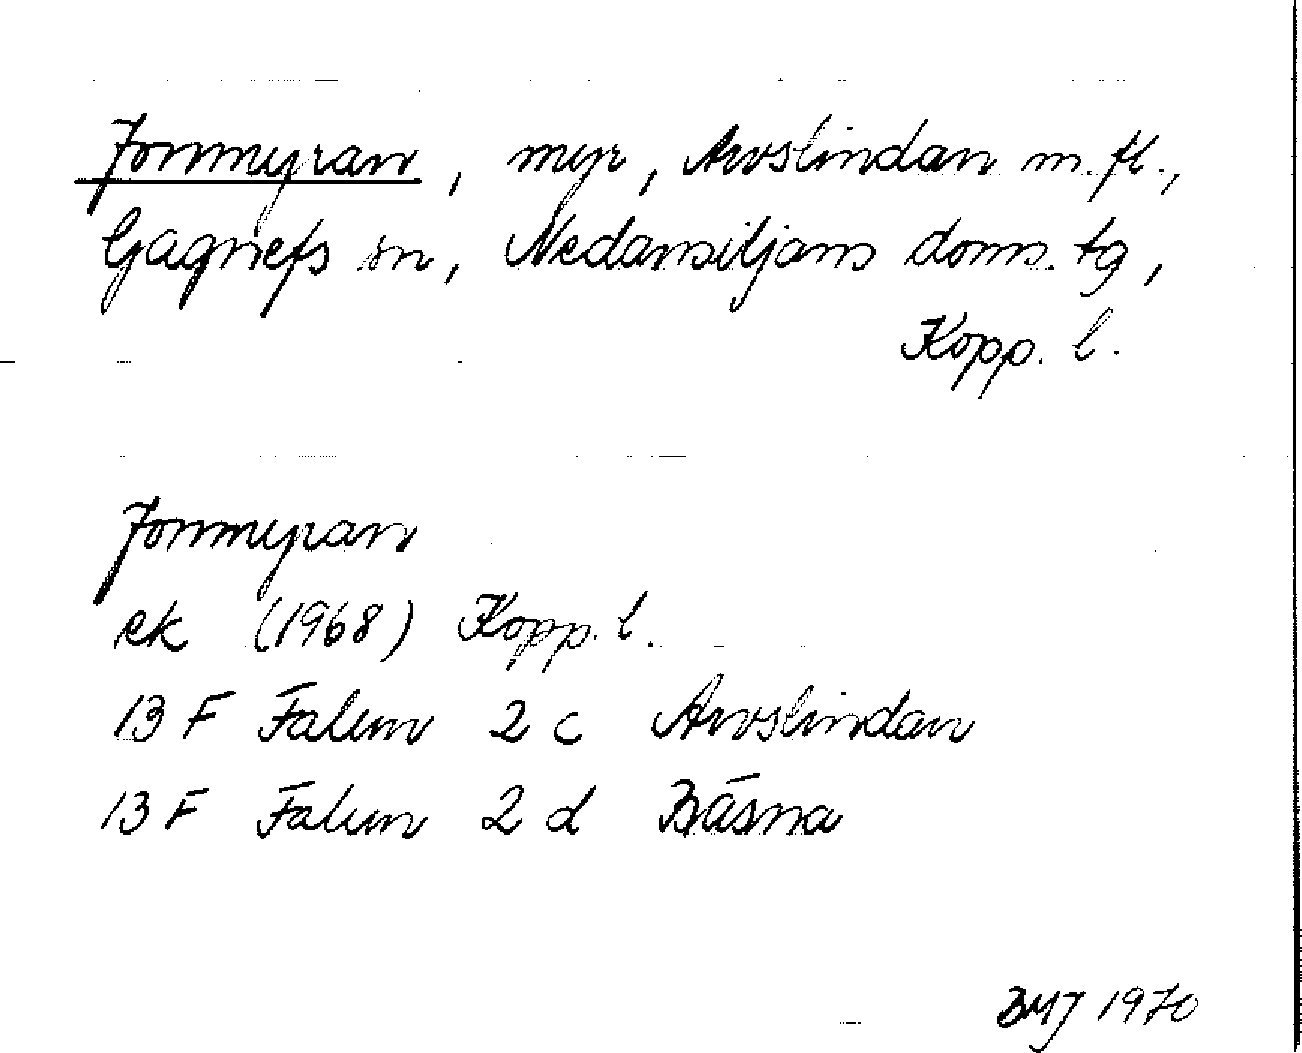 Jonmyran, myr, Arvslindan m.fl.,
Gagnefs sn, Nedansiljans doms. tg,
Kopp. l.
Jonmyran
ek (1968) Kopp. l.
13 F Falun 2 c Arvslindan
13 F Falun 2 d Båsna
BMJ 1970